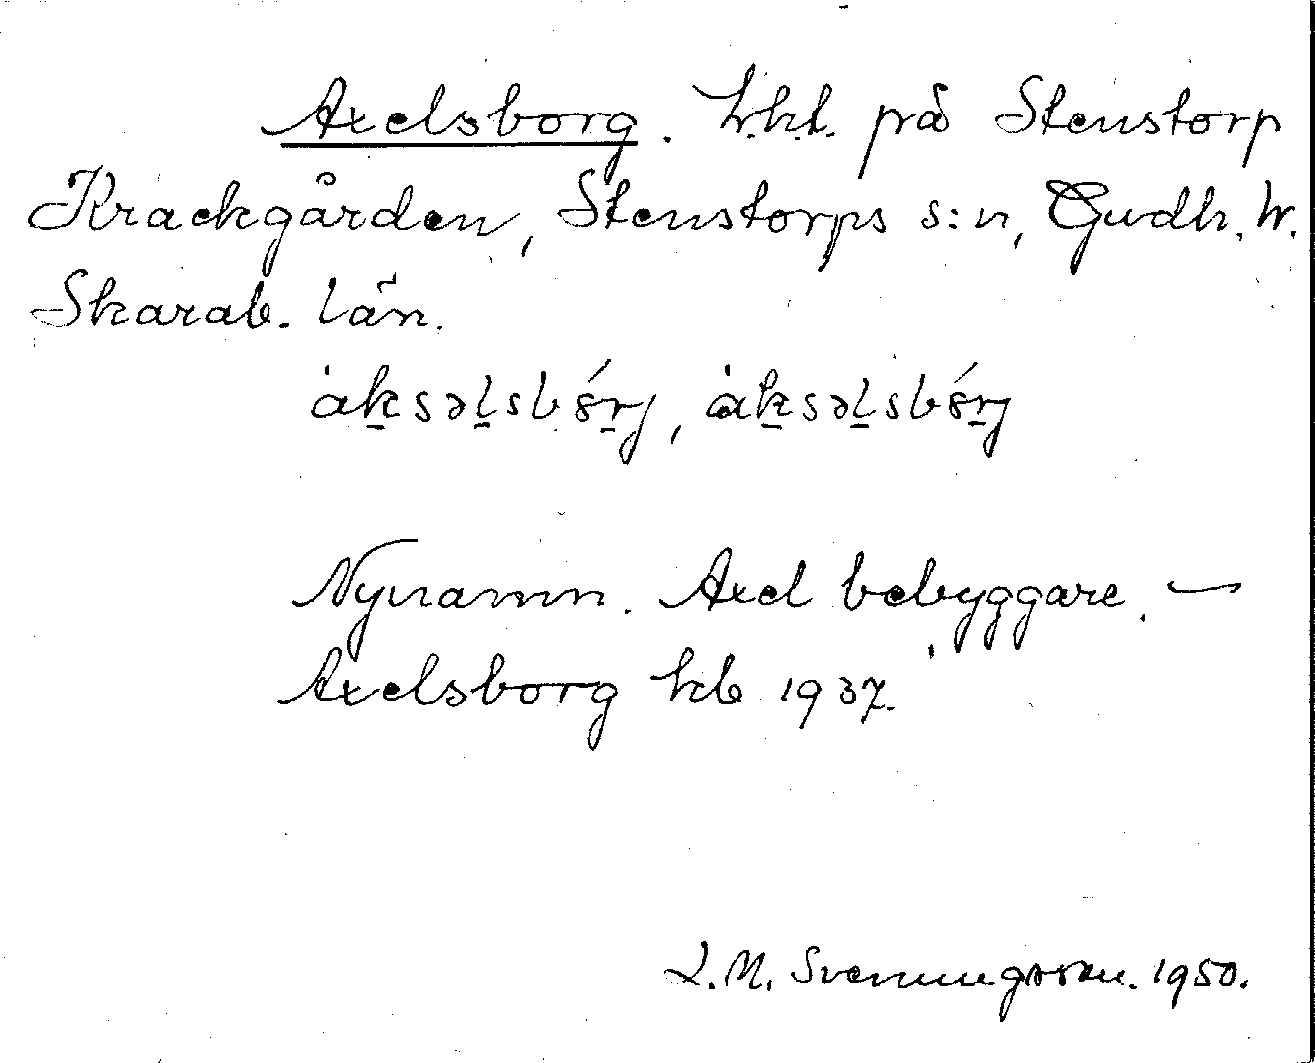 Axelsborg. h.h.t. på Stenstorp
Krackgården, Stenstorps s:n, Gudh. h.
Skarab. län.
àksəl̠sbǿrj, àksəl̠sbǿrj
Nynamn. Axel bebyggare. —
Axelsborg kb 1937.
L.M. Svenungsson. 1950.